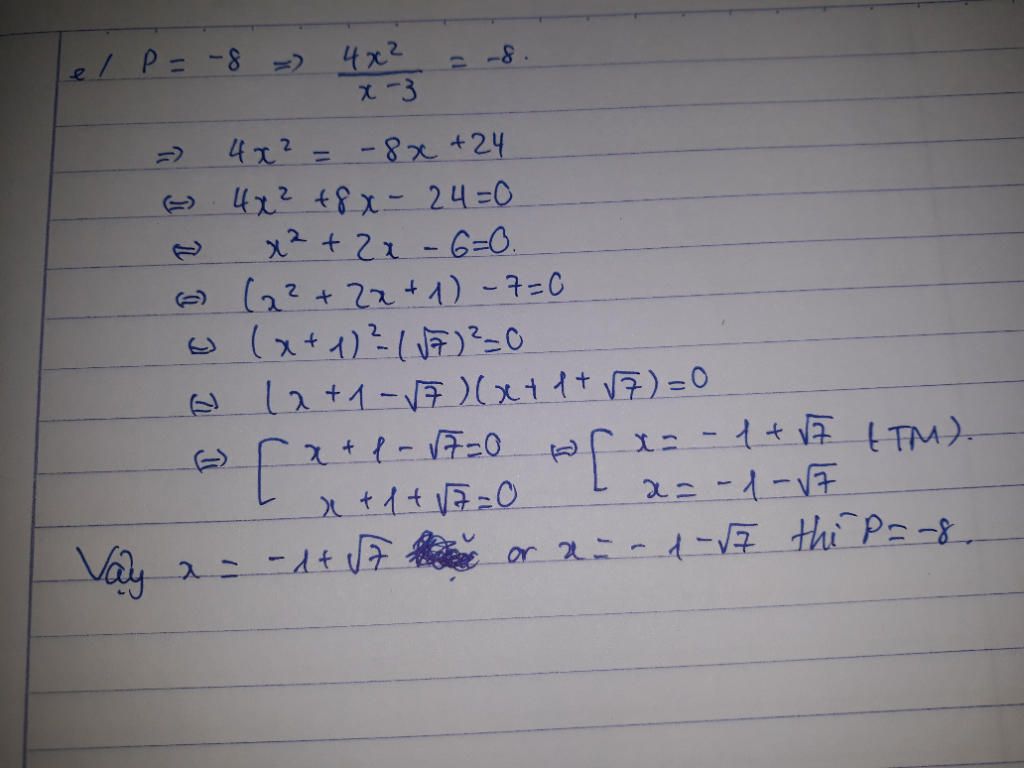 e/ P = -8 => 4x²/(x-3) = -8.
=> 4x² = -8x +24
<=> 4x² +8x - 24=0
<=> x² + 2x - 6=0.
<=> (x² + 2x + 1) - 7=0
<=> (x + 1)² - (√7)²=0
<=> (x +1 - √7)(x + 1 + √7)=0
<=> [ x + 1 - √7=0 <=> [ x = -1 + √7 (TM).
x + 1 + √7=0 x = -1 - √7
Vậy x = -1 + √7 or x = -1 - √7 thì P= -8.